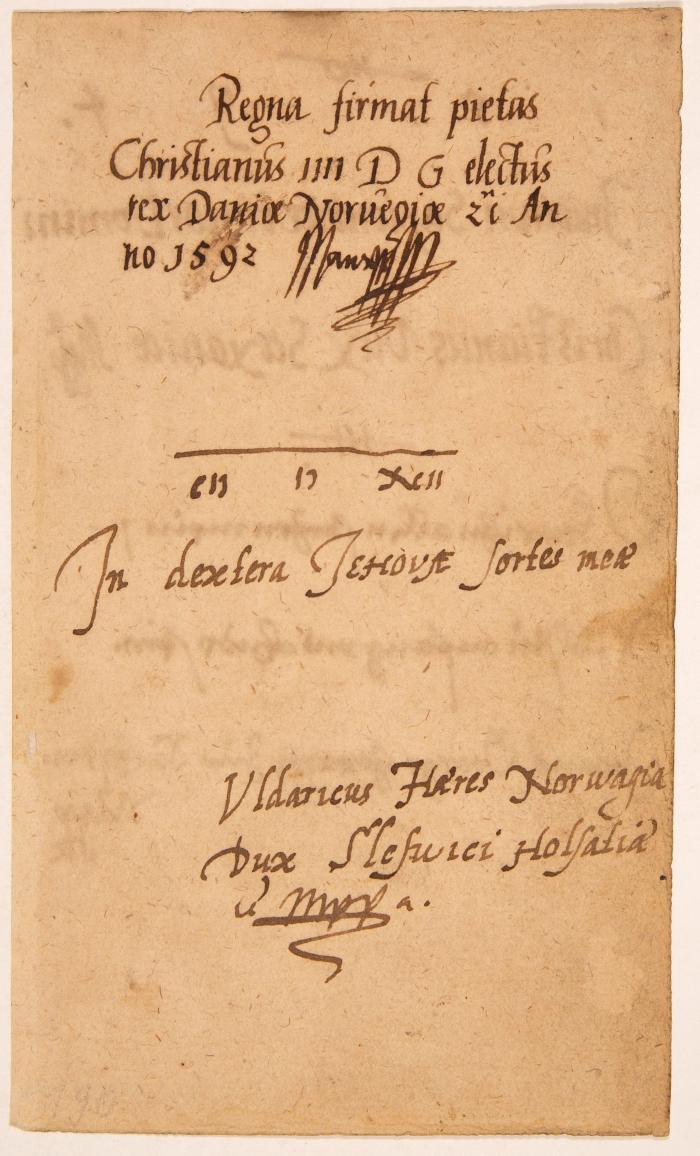 Regna firmat pietas
Christianus IIII D G electus
rex Daniæ Norvegiæ zc An
no 1592
In dextera JEHOVÆ sortes meæ
Vldaricus Hæres Norwagiæ
Dux Slesuici Holsatiæ
zc Mppa.